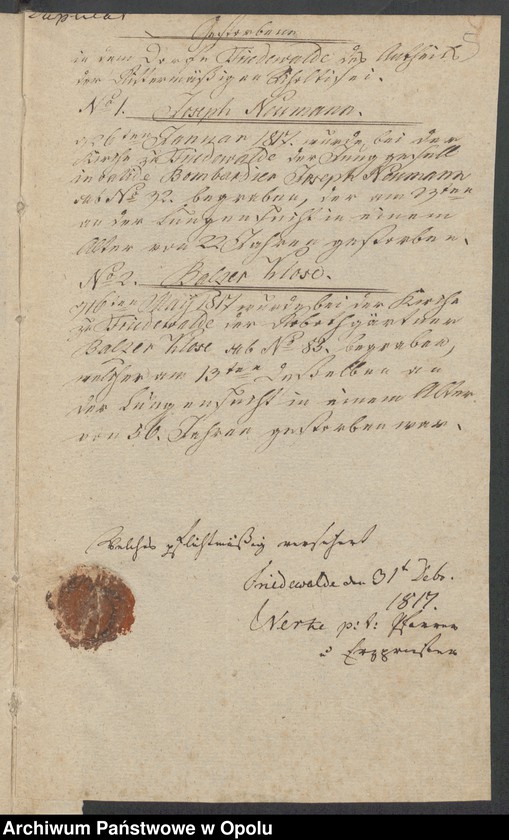 Gestorbene
in dem Dorfe Friedewalde des Antheils
der Rittermäßigen Scholtisei.
No 1. Joseph Neumann.
26ten Januar 1817. wurde bei der
Kirche zu Friedewalde der Junggesell
invalide Bombardier Joseph Neumann
sub No 32. begraben, der am 23ten
an der Lungensucht in einem
Alter von 22 Jahren gestorben.
No 2. Balzer Klose.
16ten 1817 wurde bei der Kirche
zu Friedewalde der Robothgärtner
Balzer Klose sub No 83. begraben,
welcher am 13ten desselben an
der Lungensucht in einem Alter
von 50. Jahren gestorben war.
Welches pflichtmäßig versichert
Friedewalde den 31t Debr.
1817.
p: t: Pfarrer
Archiwum Państwowe w Opolu